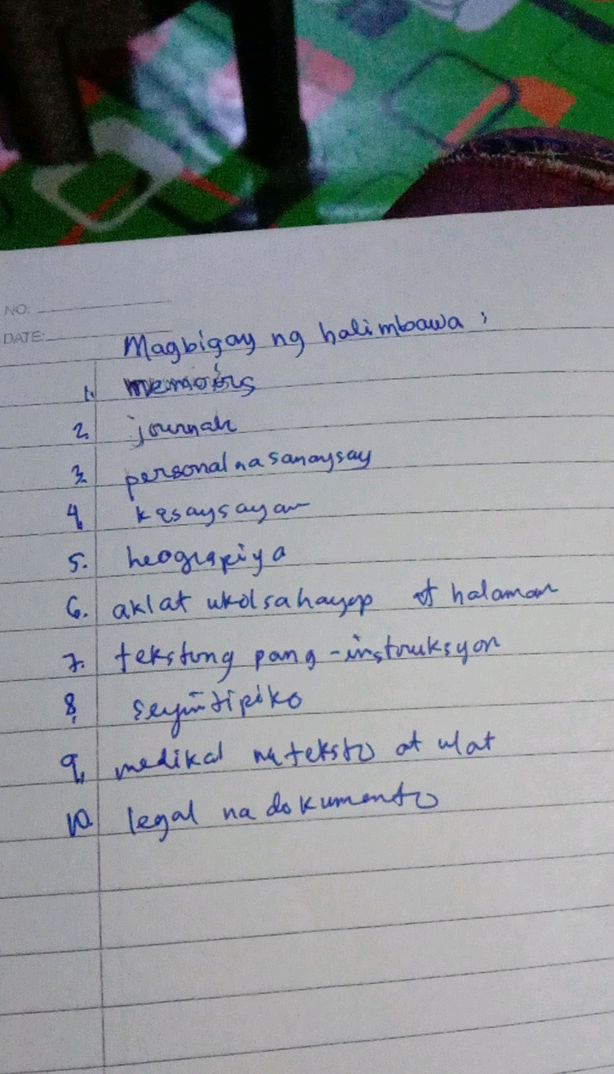 NO:
DATE:
Magbigay ng halimbawa :
1. memoirs
2. journals
3. personal na sanaysay
4. kasaysayan
5. heograpiya
6. aklat ukol sa hayop at halaman
7. tekstong pang-instruksyon
8. seyintipiko
9. medikal na teksto at ulat
10. legal na dokumento